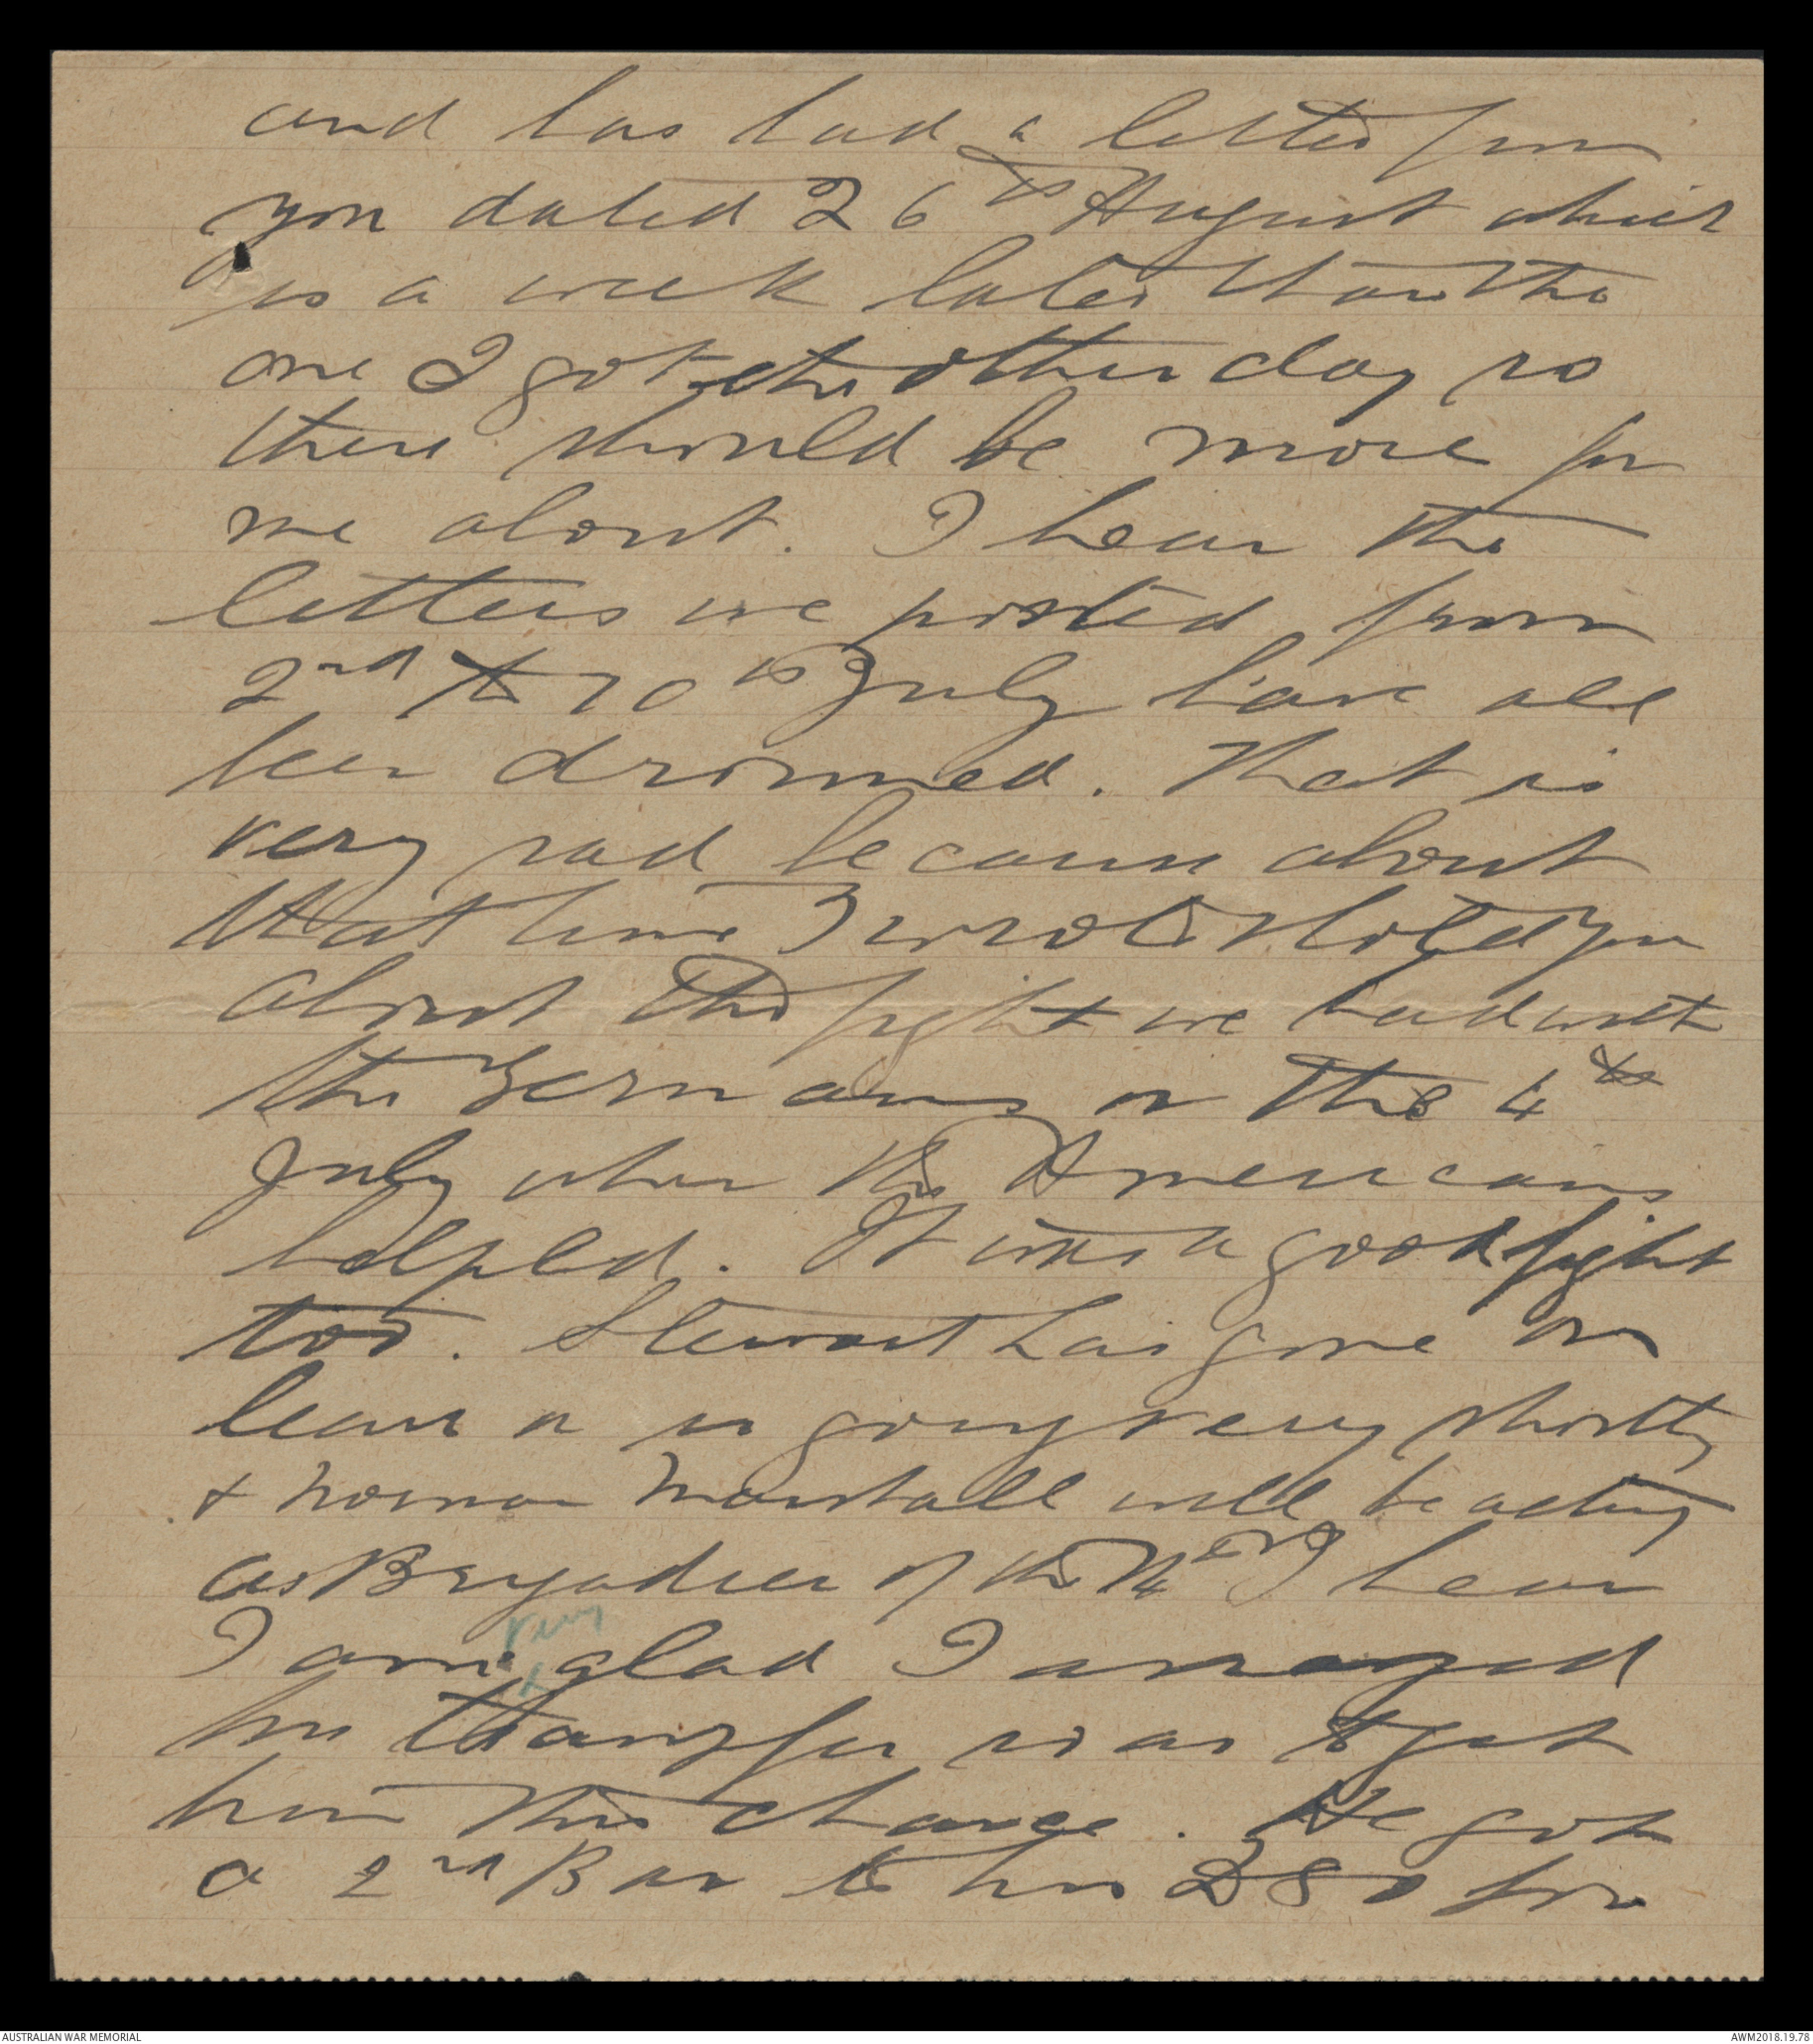 and has had a letter from
you dated 26th August which
is a week later than the
one I got the other day so
there should be more for
me about. I hear the
letters we posted from
2nd to 10th July have all
been drowned. That is
very sad because about
that time I wrote & told you
about the fight we had with
the Germans on the 4th
July when the Americans
helped. It was a good fight
too. Stewart has gone on
leave or is going very shortly
& Norman Marshall will be acting
as Brigadier of the 14th I hear
I am very glad I arranged
his transfer so as to get
him this chance. He got
a 2nd Bar to his DSO for
AUSTRALIAN WAR MEMORIAL
AWM2018.19.78